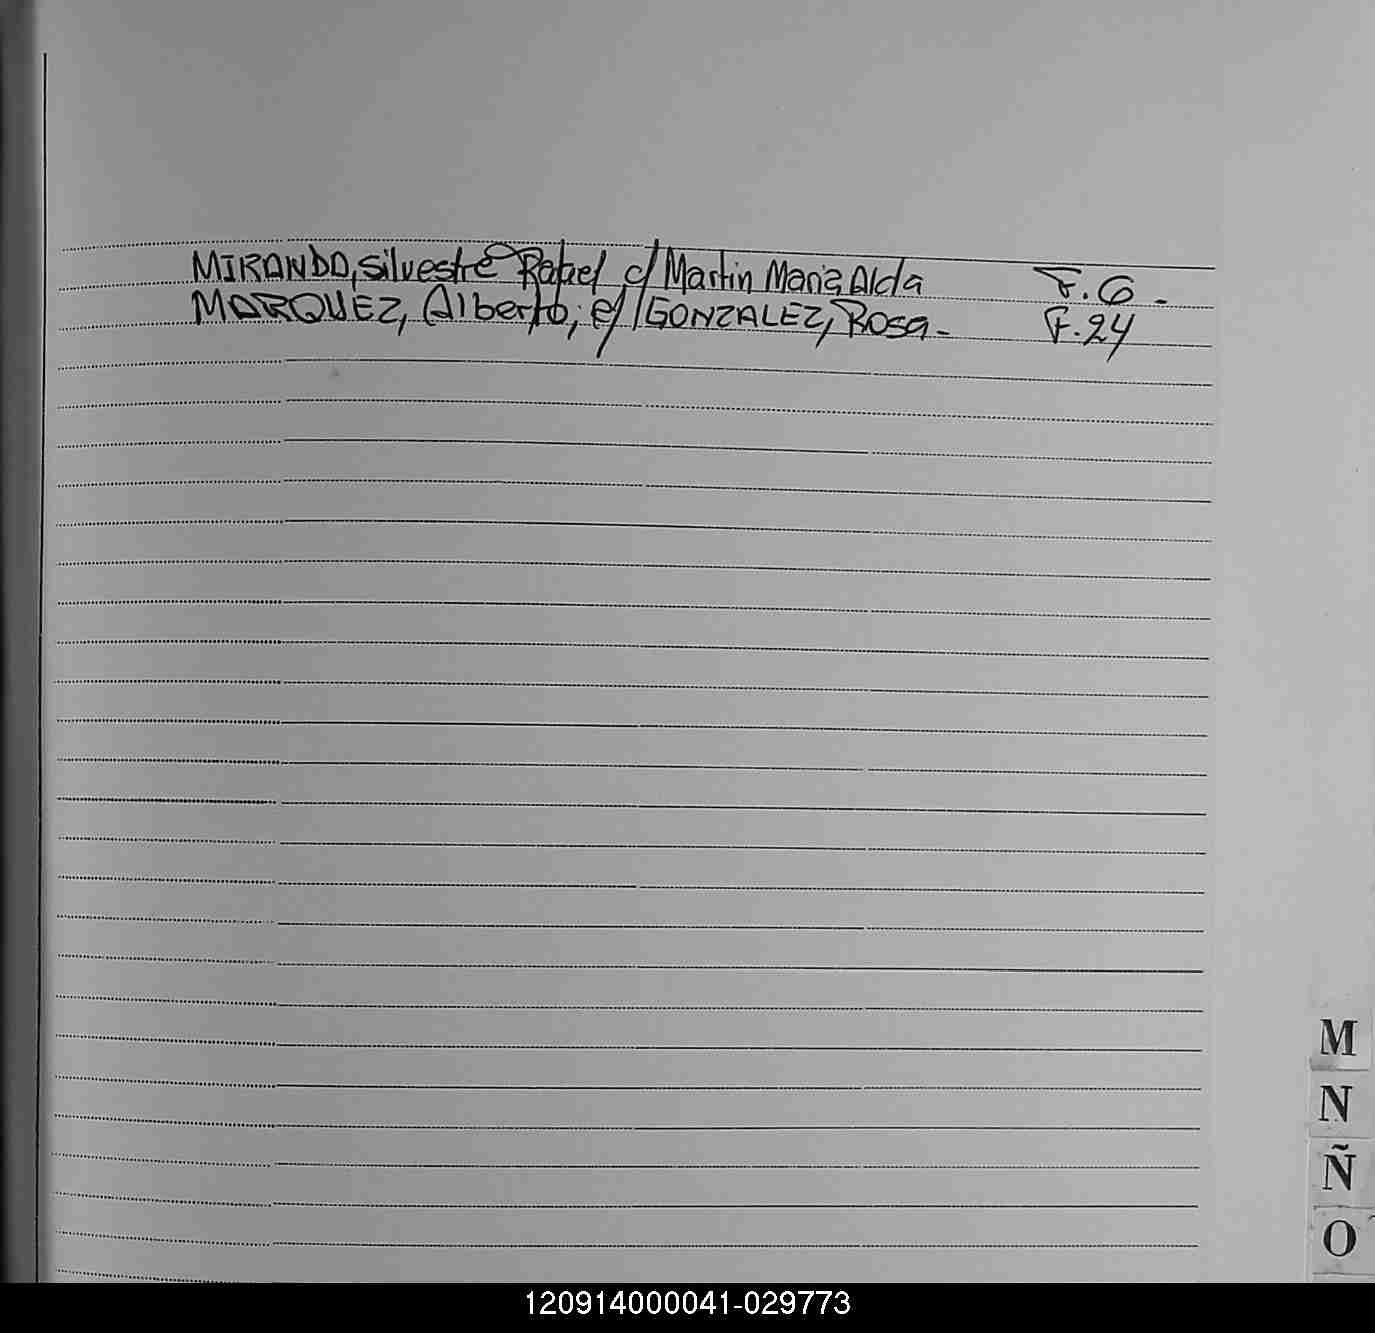 MIRANDA, Silvestre Rafael c/ Martin Maria Alda F. 6 -
MARQUEZ, Alberto; c/ GONZALEZ, Rosa - F. 24
M
N
Ñ
O
120914000041-029773